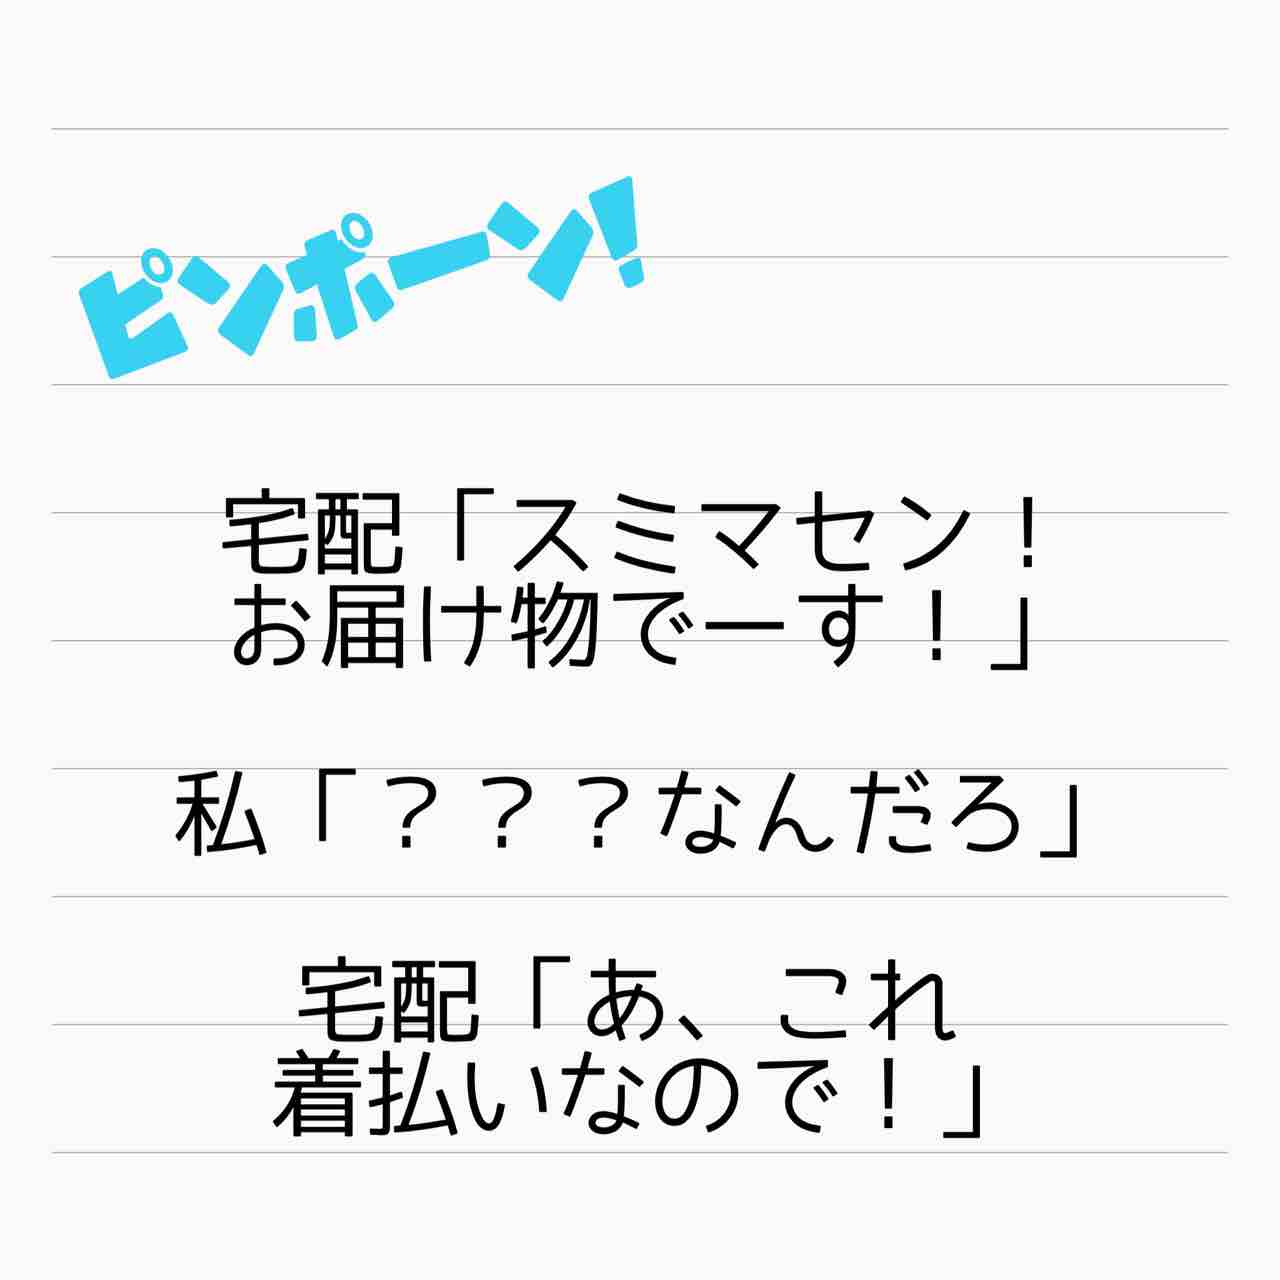 ピンポーン!
宅配「スミマセン！
お届け物でーす！」
私「？？？なんだろ」
宅配「あ、これ
着払いなので！」